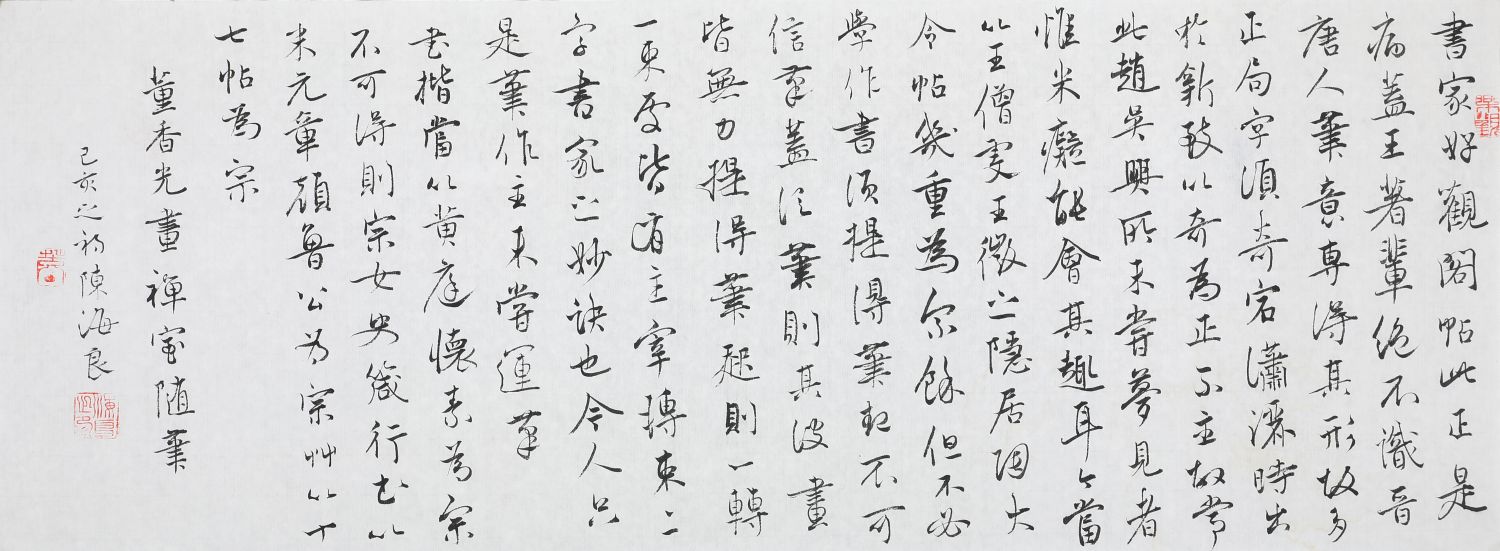 書家好觀閣帖此正是
病蓋王著輩絕不識晉
唐人筆意專得其形故多
正局字須奇宕瀟灑時出
於新致以奇為正不主故常
此趙吳興所未嘗夢見者
惟米癡能會其趣耳今當
以王僧虔王徽之隱居陶大
令帖幾重為宗餘但不必
學作書須提得筆起不可
信筆蓋信筆則其波畫
皆無力提得筆起則一轉
一束處皆有主宰轉束二
字書家之妙訣也今人只
是筆作主未嘗運筆
書楷當以黃庭懷素為宗
不可得則宗女史箴行書以
米元章顏魯公為宗艸以十
七帖為宗
董香光畫禪室隨筆
己亥之初陳海良